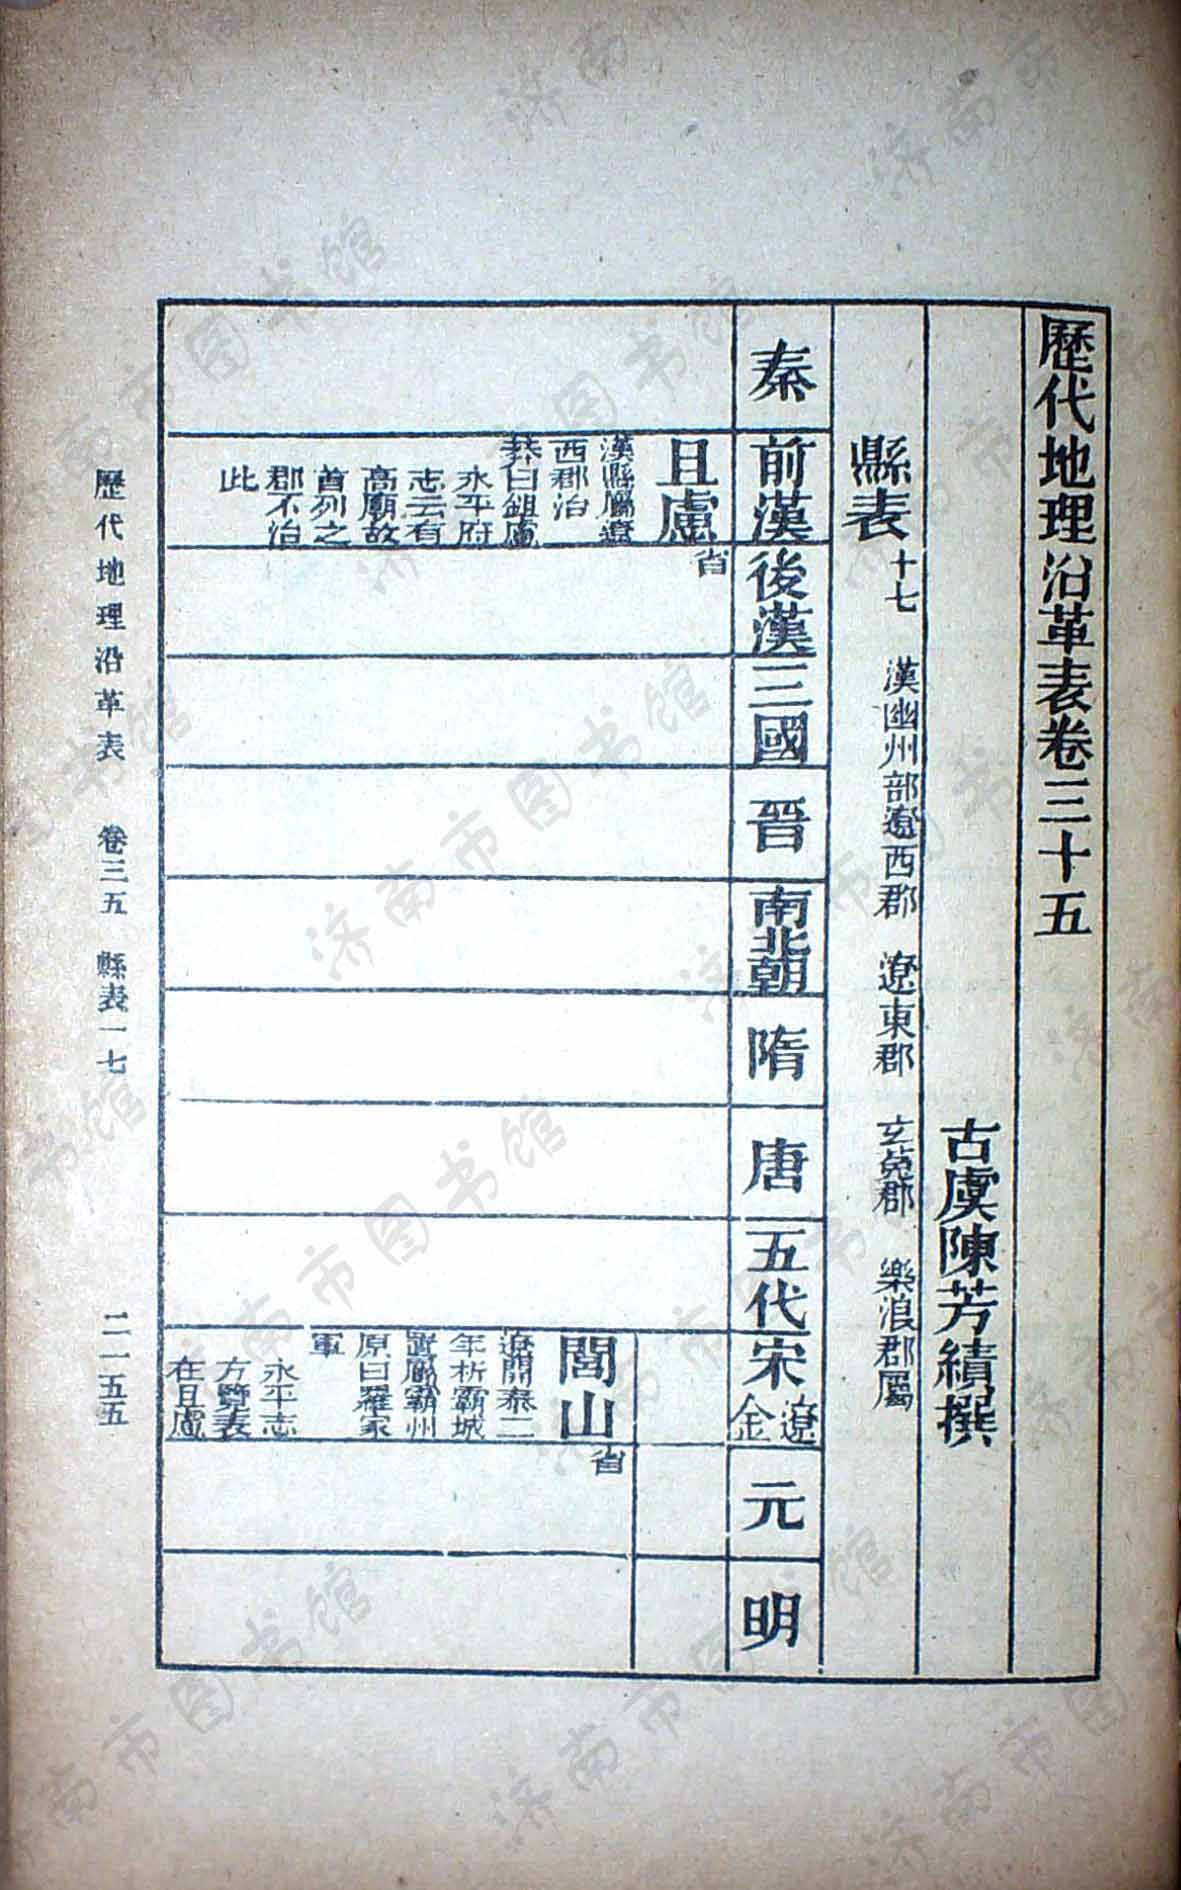 歷代地理沿革表卷三十五
古虞陳芳績撰
縣表 十七 漢幽州部遼西郡 遼東郡 玄菟郡 樂浪郡屬
秦
前漢
後漢
三國
晉
南北朝
隋
唐
五代
宋 遼
金
元
明
且慮
漢縣屬遼
西郡治
莽曰鉏慮
永平府
志云有
高廟故
首列之
郡不治
此
省
閭山
遼開泰二
年析霸城
置屬霸州
原曰羅家
軍
永平志
方覽表
在且慮
省
歷代地理沿革表 卷三五 縣表一七 二一五五
济南市图书馆